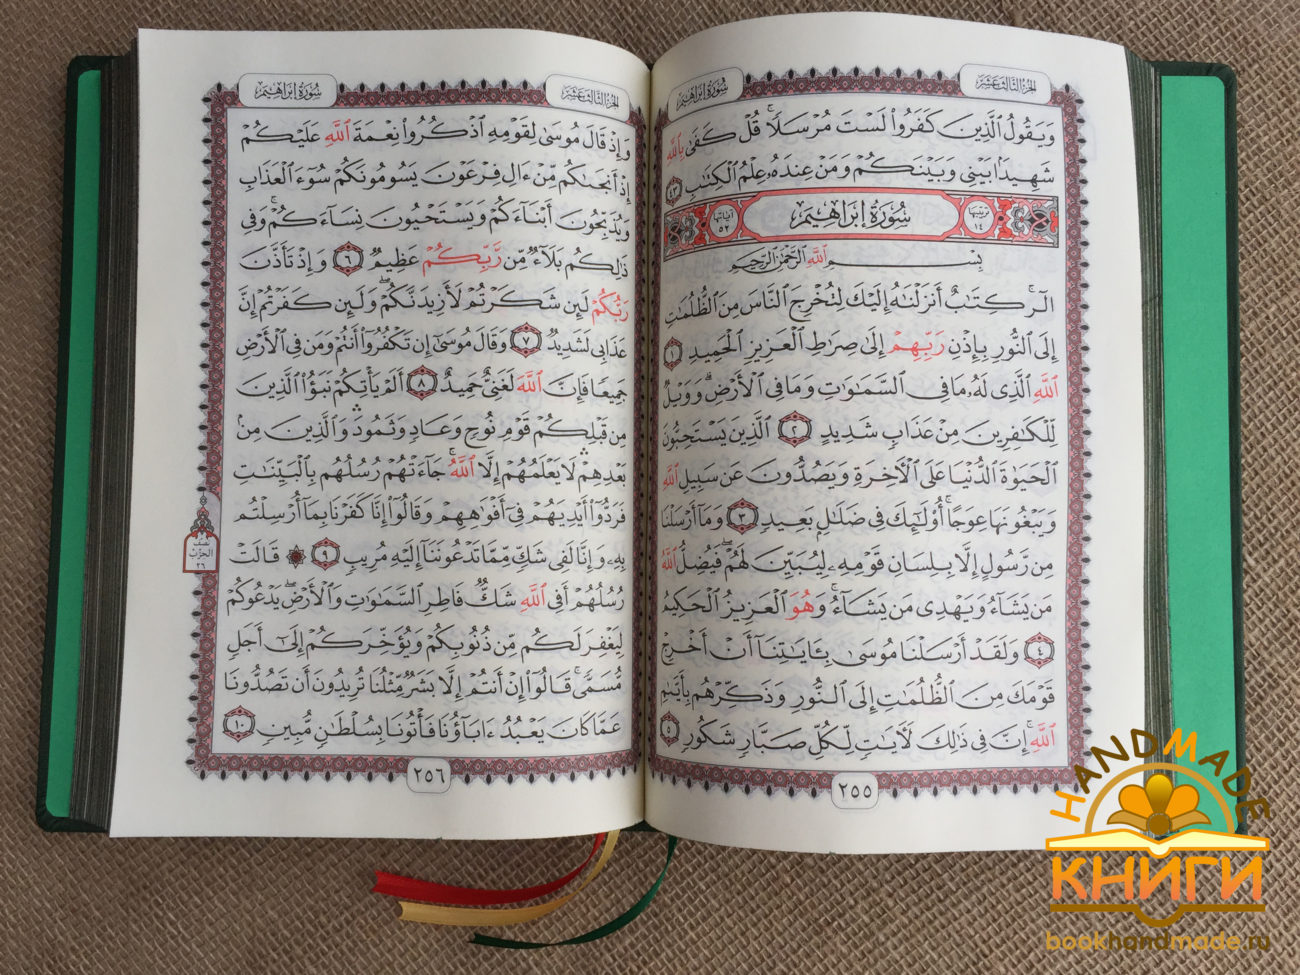 سُورَةُ إِبْرَاهِيمَ
الجُزْءُ الثَّالِثَ عَشَرَ
وَيَقُولُ الَّذِينَ كَفَرُوا۟ لَسْتَ مُرْسَلًا ۚ قُلْ كَفَىٰ بِاللَّهِ
شَهِيدًۢا بَيْنِى وَبَيْنَكُمْ وَمَنْ عِندَهُۥ عِلْمُ الْكِتَٰبِ ٤٣
ترتيبها ١٤ سُورَةُ إِبْرَاهِيمَ آياتها ٥٢
بِسْمِ اللَّهِ الرَّحْمَٰنِ الرَّحِيمِ
الٓر ۚ كِتَٰبٌ أَنزَلْنَٰهُ إِلَيْكَ لِتُخْرِجَ النَّاسَ مِنَ الظُّلُمَٰتِ
إِلَى النُّورِ بِإِذْنِ رَبِّهِمْ إِلَىٰ صِرَٰطِ الْعَزِيزِ الْحَمِيدِ ١
اللَّهِ الَّذِى لَهُۥ مَا فِى السَّمَٰوَٰتِ وَمَا فِى الْأَرْضِ ۗ وَوَيْلٌ
لِّلْكَٰفِرِينَ مِنْ عَذَابٍ شَدِيدٍ ٢ الَّذِينَ يَسْتَحِبُّونَ
الْحَيَوٰةَ الدُّنْيَا عَلَى الْأَخِرَةِ وَيَصُدُّونَ عَن سَبِيلِ اللَّهِ
وَيَبْغُونَهَا عِوَجًا ۚ أُو۟لَٰٓئِكَ فِى ضَلَٰلٍۭ بَعِيدٍ ٣ وَمَآ أَرْسَلْنَا
مِن رَّسُولٍ إِلَّا بِلِسَانِ قَوْمِهِۦ لِيُبَيِّنَ لَهُمْ ۖ فَيُضِلُّ اللَّهُ
مَن يَشَآءُ وَيَهْدِى مَن يَشَآءُ ۚ وَهُوَ الْعَزِيزُ الْحَكِيمُ
٤ وَلَقَدْ أَرْسَلْنَا مُوسَىٰ بِـَٔايَٰتِنَآ أَنْ أَخْرِجْ
قَوْمَكَ مِنَ الظُّلُمَٰتِ إِلَى النُّورِ وَذَكِّرْهُم بِأَيَّىٰمِ
اللَّهِ ۚ إِنَّ فِى ذَٰلِكَ لَـَٔايَٰتٍ لِّكُلِّ صَبَّارٍ شَكُورٍ ٥
٢٥٥
الجُزْءُ الثَّالِثَ عَشَرَ
سُورَةُ إِبْرَاهِيمَ
وَإِذْ قَالَ مُوسَىٰ لِقَوْمِهِ اذْكُرُوا۟ نِعْمَةَ اللَّهِ عَلَيْكُمْ
إِذْ أَنجَىٰكُم مِّنْ ءَالِ فِرْعَوْنَ يَسُومُونَكُمْ سُوٓءَ الْعَذَابِ
وَيُذَبِّحُونَ أَبْنَآءَكُمْ وَيَسْتَحْيُونَ نِسَآءَكُمْ ۚ وَفِى
ذَٰلِكُم بَلَآءٌ مِّن رَّبِّكُمْ عَظِيمٌ ٦ وَإِذْ تَأَذَّنَ
رَبُّكُمْ لَئِن شَكَرْتُمْ لَأَزِيدَنَّكُمْ ۖ وَلَئِن كَفَرْتُمْ إِنَّ
عَذَابِى لَشَدِيدٌ ٧ وَقَالَ مُوسَىٰٓ إِن تَكْفُرُوٓا۟ أَنتُمْ وَمَن فِى الْأَرْضِ
جَمِيعًا فَإِنَّ اللَّهَ لَغَنِىٌّ حَمِيدٌ ٨ أَلَمْ يَأْتِكُمْ نَبَؤُا۟ الَّذِينَ
مِن قَبْلِكُمْ قَوْمِ نُوحٍ وَعَادٍ وَثَمُودَ ۛ وَالَّذِينَ مِنۢ
بَعْدِهِمْ ۛ لَا يَعْلَمُهُمْ إِلَّا اللَّهُ ۚ جَآءَتْهُمْ رُسُلُهُم بِالْبَيِّنَٰتِ
فَرَدُّوٓا۟ أَيْدِيَهُمْ فِىٓ أَفْوَٰهِهِمْ وَقَالُوٓا۟ إِنَّا كَفَرْنَا بِمَآ أُرْسِلْتُم
بِهِۦ وَإِنَّا لَفِى شَكٍّ مِّمَّا تَدْعُونَنَآ إِلَيْهِ مُرِيبٍ ٩ ۞ قَالَتْ
رُسُلُهُمْ أَفِى اللَّهِ شَكٌّ فَاطِرِ السَّمَٰوَٰتِ وَالْأَرْضِ ۖ يَدْعُوكُمْ
لِيَغْفِرَ لَكُم مِّن ذُنُوبِكُمْ وَيُؤَخِّرَكُمْ إِلَىٰٓ أَجَلٍ
مُّسَمًّى ۚ قَالُوٓا۟ إِنْ أَنتُمْ إِلَّا بَشَرٌ مِّثْلُنَا تُرِيدُونَ أَن تَصُدُّونَا
عَمَّا كَانَ يَعْبُدُ ءَابَآؤُنَا فَأْتُونَا بِسُلْطَٰنٍ مُّبِينٍ ١٠
نصف
الحزب
٢٦
٢٥٦
HANDMADE
КНИГИ
bookhandmade.ru